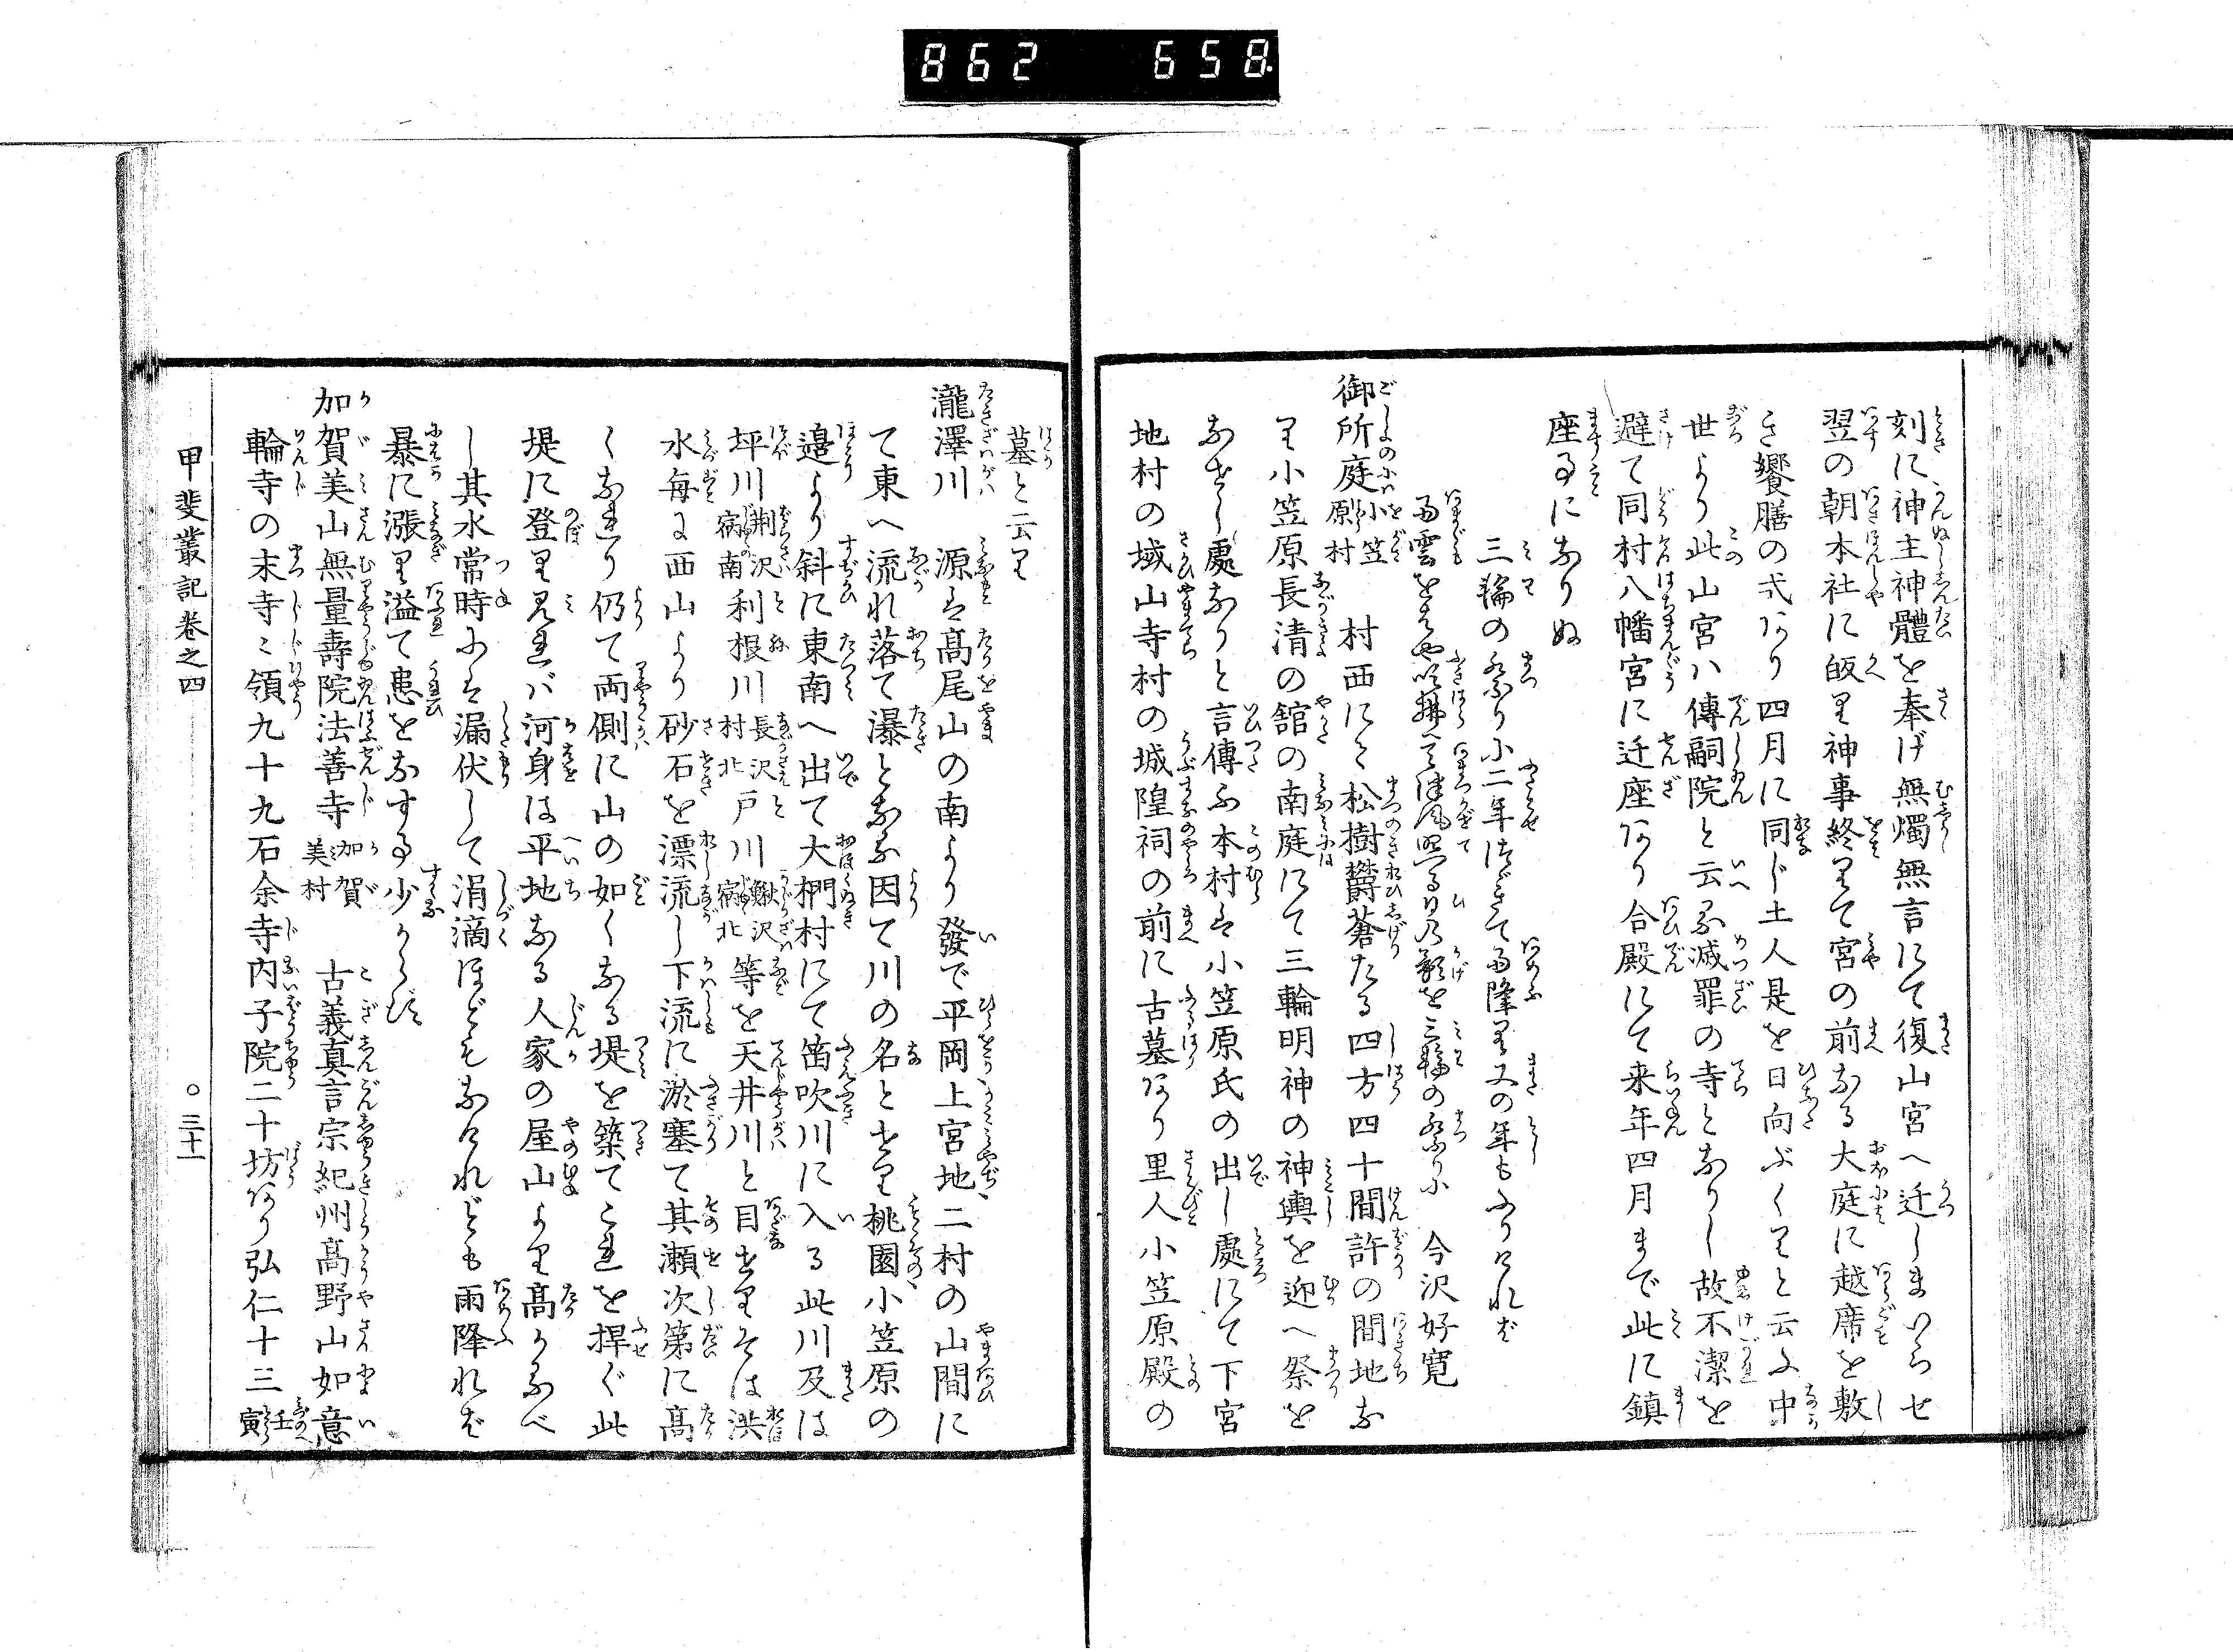 862 658
刻に神主神體を奉げ無燭無言にて復山宮へ迁しまいらせ
翌の朝本社に皈り神事終りて宮の前なる大庭に越席を敷
き饗膳の式あり四月に同じ土人是を日向ぶくりと云ふ中
世より此山宮ハ傳嗣院と云る滅罪の寺となりし故不潔を
避て同村八幡宮に迁座あり合殿にて来年四月まで此に鎮
座る事になりぬ
三輪の祭り小二年つゞきて雨降り又の年もふりけれぱ
雨雲をはや吹拂へ天津風照る日乃影を三輪の祭り小 今沢好寛
御所庭小笠原村 村西にて松樹欝蒼たる四方四十間許の間地な
り小笠原長清の舘の南庭にて三輪明神の神輿を迎へ祭を
なせし處なりと言傳ふ本村は小笠原氏の出し處にて下宮
地村の域山寺村の城隍祠の前に古墓あり里人小笠原殿の
墓と云り
瀧澤川 源は髙尾山の南より發で平岡上宮地二村の山間に
て東へ流れ落て瀑となる因て川の名とせり桃園小笠原の
邉より斜に東南へ出て大椚村にて笛吹川に入る此川及は
坪川荊沢宿南利根川長沢村北戸川鰍沢宿北等を天井川と目せりそは洪
水毎に西山より砂石を漂流し下流に淤塞て其瀬次第に髙
くなれり仍て両側に山の如くなる堤を築てこれを捍ぐ此
堤に登り見れバ河身は平地なる人家の屋山より髙かるべ
し其水常時ふは漏伏して涓滴ほどもなけれども雨降れば
暴に漲り溢て患をなする事少からず
加賀美山無量壽院法善寺加賀美村 古義真言宗紀州髙野山如意
輪寺の末寺〻領九十九石余寺内子院二十坊あり弘仁十三壬寅
甲斐叢記巻之四 ○三十一